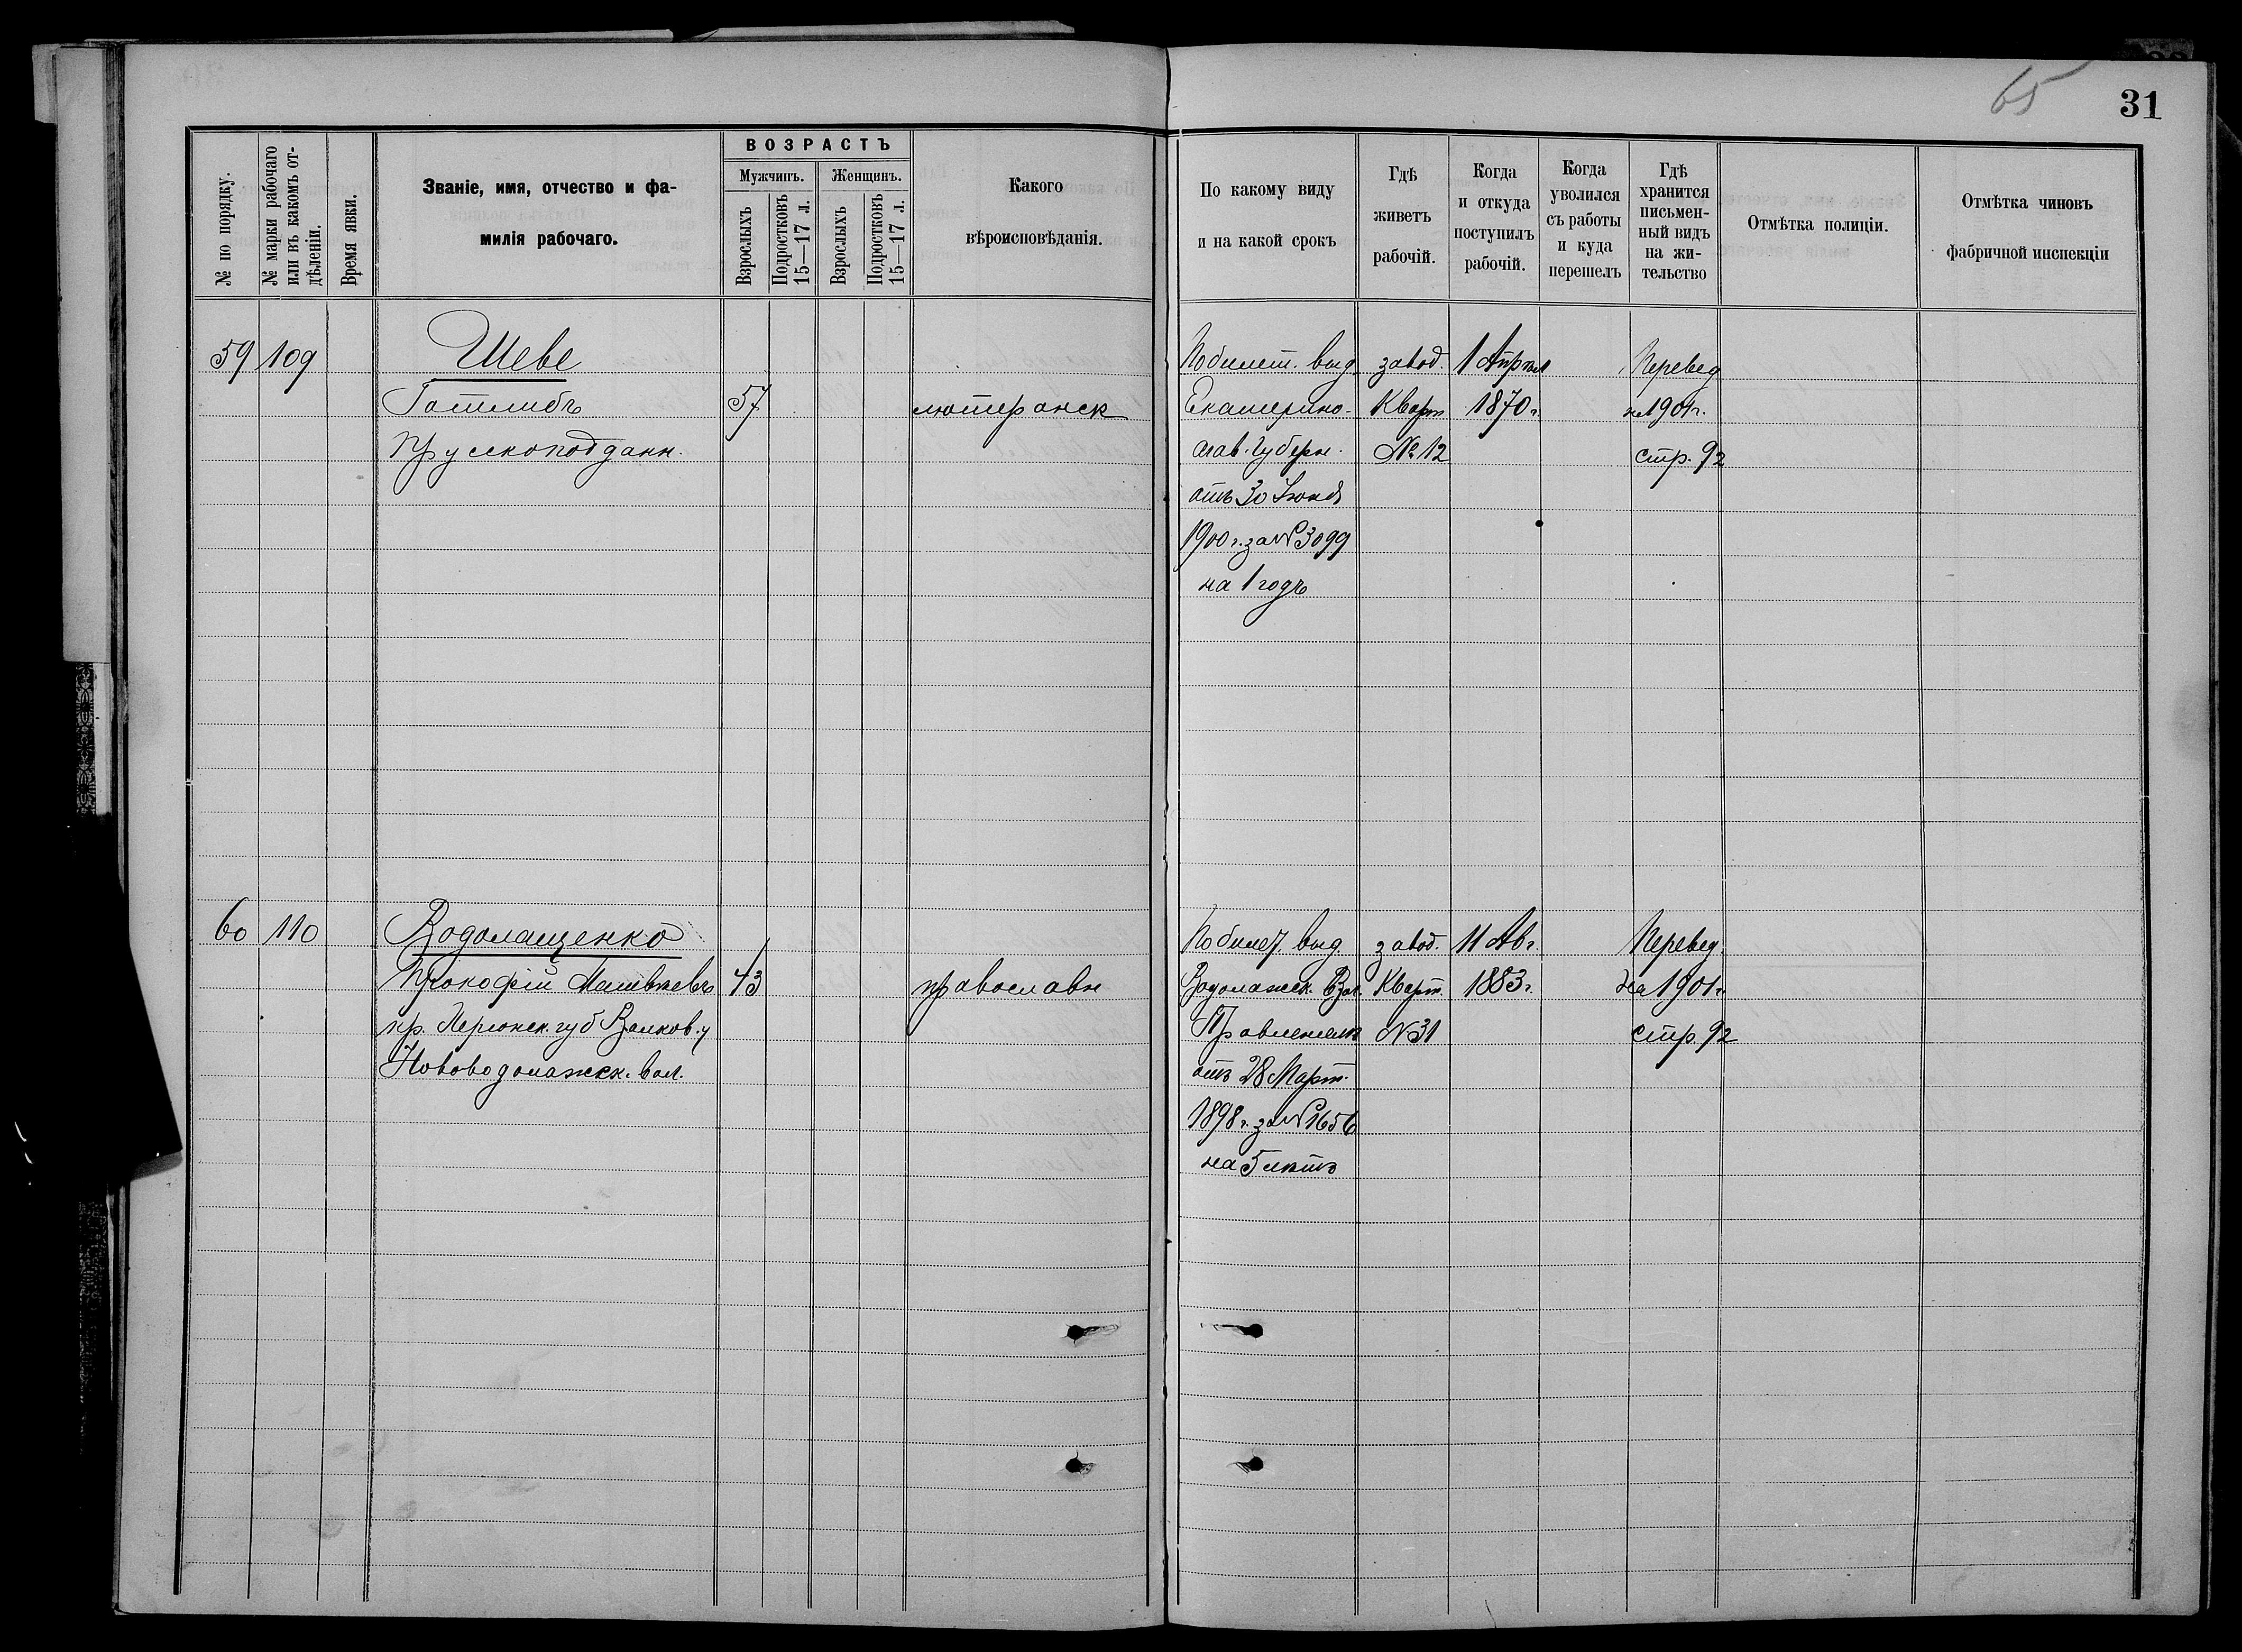 65
31
№ по порядку.
№ марки рабочаго или въ какомъ отдѣленіи.
Время явки.
Званіе, имя, отчество и фа-
милія рабочаго.
ВОЗРАСТЪ
Мужчинъ.
Женщинъ.
Взрослыхъ
Подростковъ 15—17 л.
Взрослыхъ
Подростковъ 15—17 л.
Какого
вѣроисповѣданія.
По какому виду
и на какой срокъ
Гдѣ
живетъ
рабочій.
Когда
и откуда
поступилъ
рабочій.
Когда
уволился
съ работы
и куда
перешелъ
Гдѣ
хранится
письмен-
ный видъ
на жи-
тельство
Отмѣтка полиціи.
Отмѣтка чиновъ
фабричной инспекціи
59 109 Шеве
Готлибъ 57 лютеранск
Прускоподданн.
По билет. выд.
Екатерино-
слав. Губерн.
отъ 30 Іюня
1900 г. за № 3099
на 1 годъ
завод.
Кварт
№ 12
1 Апрѣля
1870 г.
Перевед
на 1901 г.
стр. 92
60 110 Водолащенко
Прокофій Матвѣевъ 43 православн
кр. Валков. у
Нововодолажск. вол.
По билет. выд.
Водолажск. Вол.
Правленіем
отъ 28 Март.
1898 г. за № 1656
на 5 лѣтъ
завод.
Кварт.
№ 31
11 Авг.
1883 г.
Перевед.
на 1901 г.
стр. 92